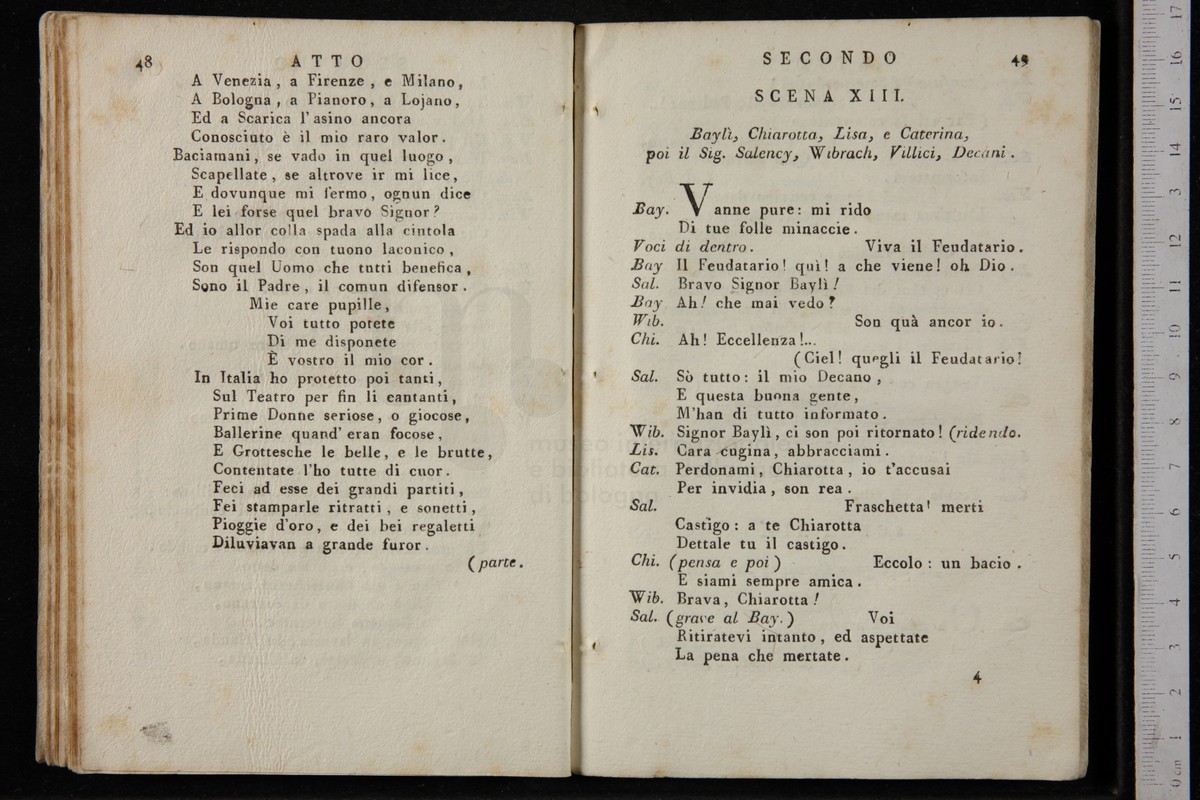 48 ATTO
A Venezia, a Firenze, e Milano,
A Bologna, a Pianoro, a Lojano,
Ed a Scarica l'asino ancora
Conosciuto è il mio raro valor.
Baciamani, se vado in quel luogo,
Scapellate, se altrove ir mi lice,
E dovunque mi fermo, ognun dice
E lei forse quel bravo Signor?
Ed io allor colla spada alla cintola
Le rispondo con tuono laconico,
Son quel Uomo che tutti benefica,
Sono il Padre, il comun difensor.
Mie care pupille,
Voi tutto potete
Di me disponete
È vostro il mio cor.
In Italia ho protetto poi tanti,
Sul Teatro per fin li cantanti,
Prime Donne seriose, o giocose,
Ballerine quand' eran focose,
E Grottesche le belle, e le brutte,
Contentate l'ho tutte di cuor.
Feci ad esse dei grandi partiti,
Fei stamparle ritratti, e sonetti,
Pioggie d'oro, e dei bei regaletti
Diluviavan a grande furor.
(parte.
SECONDO 49
SCENA XIII.
Baylì, Chiarotta, Lisa, e Caterina,
poi il Sig. Salency, Wibrach, Villici, Decani.
Bay. Vanne pure: mi rido
Di tue folle minaccie.
Voci di dentro. Viva il Feudatario.
Bay Il Feudatario! quì! a che viene! oh Dio.
Sal. Bravo Signor Baylì!
Bay Ah! che mai vedo?
Wib. Son quà ancor io.
Chi. Ah! Eccellenza!...
(Ciel! quegli il Feudatario!
Sal. Sò tutto: il mio Decano,
E questa buona gente,
M'han di tutto informato.
Wib. Signor Baylì, ci son poi ritornato! (ridendo.
Lis. Cara cugina, abbracciami.
Cat. Perdonami, Chiarotta, io t'accusai
Per invidia, son rea.
Sal. Fraschetta! merti
Castigo: a te Chiarotta
Dettale tu il castigo.
Chi. (pensa e poi) Eccolo: un bacio.
E siami sempre amica.
Wib. Brava, Chiarotta!
Sal. (grave al Bay.) Voi
Ritiratevi intanto, ed aspettate
La pena che mertate.
4